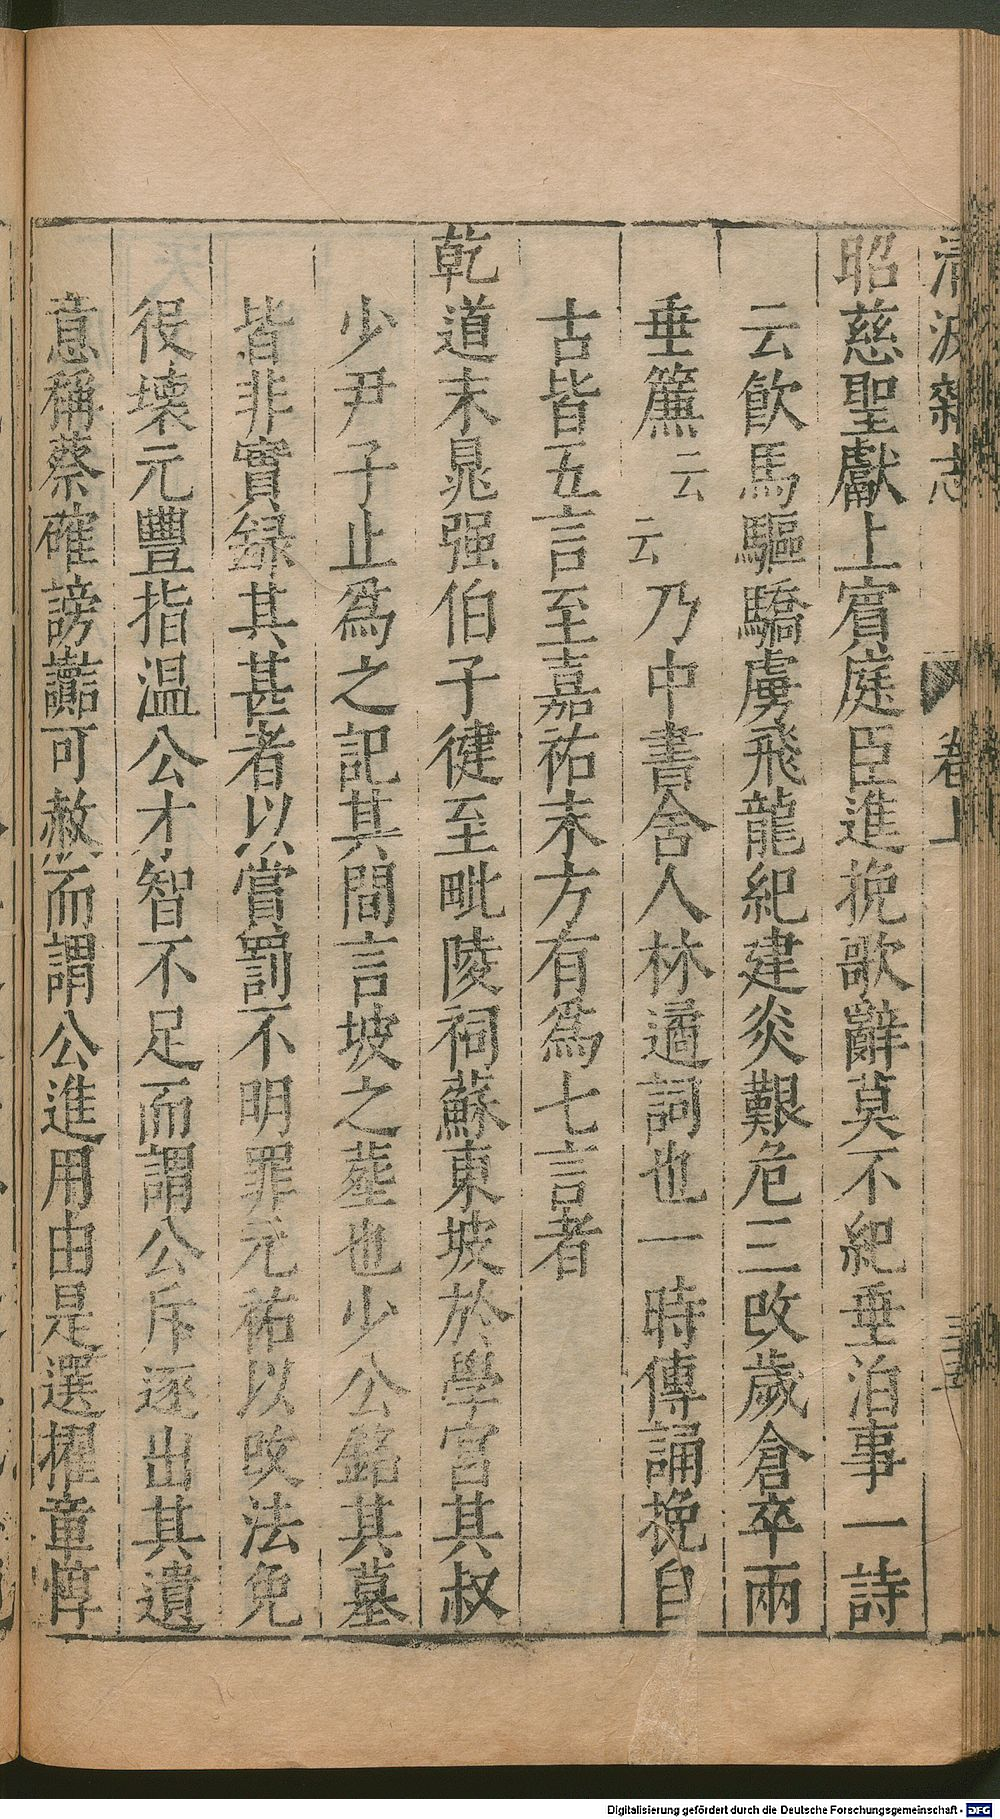 清波雜志 卷上 三十五
昭慈聖獻上賓庭臣進挽歌辭莫不紀垂泊事一詩
云飲馬驅驕虜飛龍紀建炎艱危三改歲倉卒兩
垂簾云云乃中書舍人林遹詞也一時傳誦挽自
古皆五言至嘉祐末方有爲七言者
乾道末晁强伯子健至毗陵祠蘇東坡於學宮其叔
少尹子止爲之記其間言坡之塟也少公銘其墓
皆非實録其甚者以賞罰不明罪元祐以改法免
役壞元豐指温公才智不足而謂公斥逐出其遺
意稱蔡確謗讟可赦而謂公進用由是選擢章惇
Digitalisierung gefördert durch die Deutsche Forschungsgemeinschaft - DFG